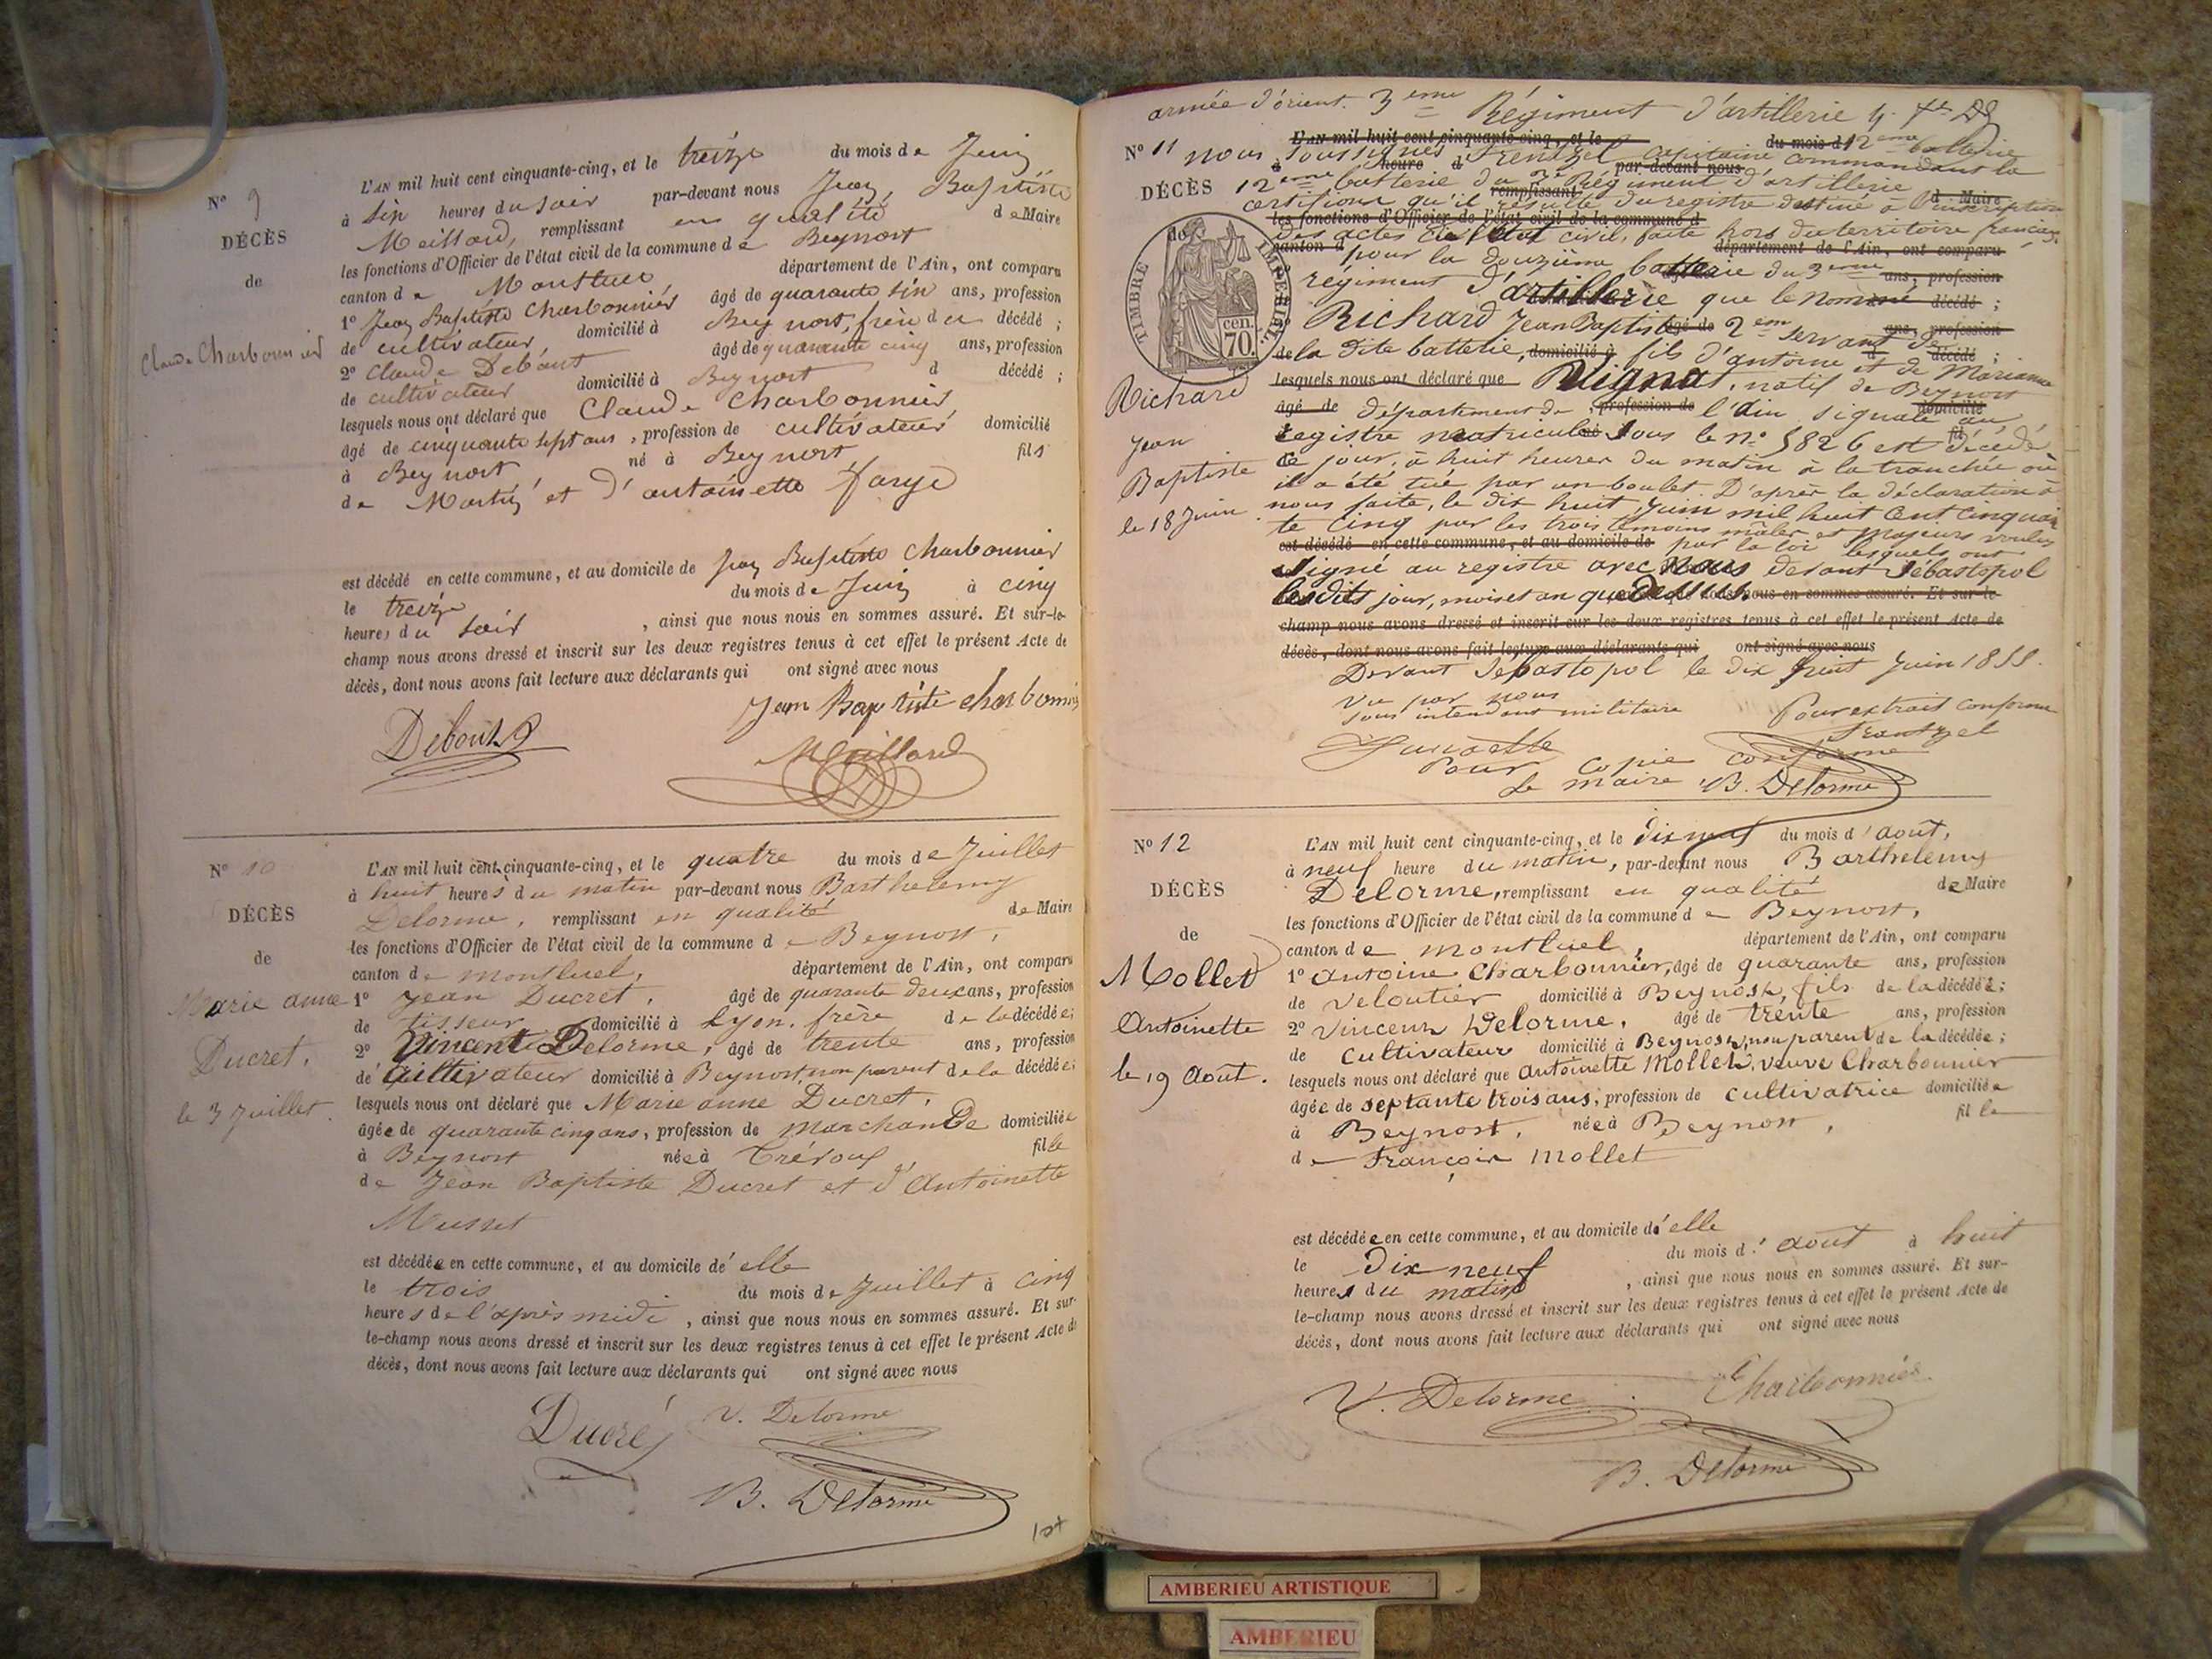 N° 9
DÉCÈS
de
Claude Charbonnier
L'AN mil huit cent cinquante-cinq, et le treize du mois de Juin
à six heures du soir par-devant nous Jean, Baptiste
Meillard, remplissant en qualité de Maire
les fonctions d'Officier de l'état civil de la commune de Beynost
canton de Montluel département de l'Ain, ont comparu
1° Jean Baptiste Charbonnier âgé de quarante six ans, profession
de cultivateur, domicilié à Beynost, frère du décédé ;
2° Claude Debout âgé de quarante cinq ans, profession
de cultivateur domicilié à Beynost d décédé ;
lesquels nous ont déclaré que Claude Charbonnier
âgé de cinquante sept ans, profession de cultivateur domicilié
à Beynost né à Beynost fils
de Martin et d'antoinette farge
est décédé en cette commune, et au domicile de Jean Baptiste Charbonnier
le treize du mois de Juin à cinq
heures du soir , ainsi que nous nous en sommes assuré. Et sur-le-
champ nous avons dressé et inscrit sur les deux registres tenus à cet effet le présent Acte de
décès, dont nous avons fait lecture aux déclarants qui ont signé avec nous
Jean Baptiste charbonnier
Debout
Meillard
N° 10
DÉCÈS
de
Marie anne
Ducret.
le 3 Juillet.
L'AN mil huit cent cinquante-cinq, et le quatre du mois de Juillet
à huit heures du matin par-devant nous Barthelemy
Delorme, remplissant en qualité de Maire
les fonctions d'Officier de l'état civil de la commune de Beynost,
canton de montluel, département de l'Ain, ont comparu
1° Jean Ducret, âgé de quarante deux ans, profession
de tisseur domicilié à Lyon, frère de la décédée;
2° Vincent Delorme, âgé de trente ans, profession
de cultivateur domicilié à Beynost, non parent de la décédée;
lesquels nous ont déclaré que Marie anne Ducret,
âgée de quarante cinq ans, profession de marchande domiciliée
à Beynost née à Trévoux, fille
de Jean Baptiste Ducret et d'Antoinette
Musset
est décédée en cette commune, et au domicile d'elle
le trois du mois de Juillet à cinq
heures de l'après midi , ainsi que nous nous en sommes assuré. Et sur-
le-champ nous avons dressé et inscrit sur les deux registres tenus à cet effet le présent Acte de
décès, dont nous avons fait lecture aux déclarants qui ont signé avec nous
Ducré V. Delorme
B. Delorme
armée d'orient. 3eme Régiment d'artillerie
N° 11
DÉCÈS
TIMBRE IMPERIAL
70 cen.
Richard
Jean
Baptiste
le 18 Juin
L'AN mil huit cent cinquante-cinq, et le du mois d 12eme batterie
nous soussignés Frentzel capitaine commandant la
12eme batterie du 3e Régiment d'artillerie
certifions qu'il résulte du registre destiné à l'inscription
les fonctions d'Officier de l'état civil de la commune d
des actes de l'état civil, faite hors du territoire français
canton d département de l'Ain, ont comparu
pour la douzième batterie du 3eme ans, profession
régiment d'artillerie que le nommé décédé ;
Richard Jean Baptiste 2eme servant de
ans, profession
de la dite batterie, domicilié à fils d'antoine et de Marianne
lesquels nous ont déclaré que Vignat, natif de Beynost
âgé de département de , profession de l'ain signalé au domicilié
registre matricule sous le n° 5826 est décédé
ce jour, à huit heures du matin à la tranchée où
il a été tué par un boulet. D'après la déclaration à
nous faite, le dix huit Juin mil huit cent cinquan
te cinq par les trois témoins mâles et majeurs voulus
est décédé en cette commune, et au domicile de par la loi lesquels ont
signé au registre avec nous devant Sébastopol
lesdits jour, mois et an que dessus. nous en sommes assuré. Et sur-le-
champ nous avons dressé et inscrit sur les deux registres tenus à cet effet le présent Acte de
décès, dont nous avons fait lecture aux déclarants qui ont signé avec nous
Devant Sébastopol le dix huit Juin 1855.
Vu par nous
sous intendant militaire
Pour extrait conforme
Frentzel
Pour copie conforme
Le maire B. Delorme
N° 12
DÉCÈS
de
Mollet
Antoinette
le 19 Août.
L'AN mil huit cent cinquante-cinq, et le dix neuf du mois d'août,
à neuf heure du matin, par-devant nous Barthelemy
Delorme, remplissant en qualité de Maire
les fonctions d'Officier de l'état civil de la commune de Beynost,
canton de montluel, département de l'Ain, ont comparu
1° antoine Charbonnier, âgé de quarante ans, profession
de veloutier domicilié à Beynost, fils de la décédée;
2° Vincent Delorme, âgé de trente ans, profession
de cultivateur domicilié à Beynost, non parent de la décédée;
lesquels nous ont déclaré que antoinette Mollet, veuve Charbonnier
âgée de septante trois ans, profession de cultivatrice domiciliée
à Beynost, née à Beynost, fille
de françois Mollet
est décédée en cette commune, et au domicile d'elle
le dix neuf du mois d'août à huit
heures du matin , ainsi que nous nous en sommes assuré. Et sur-
le-champ nous avons dressé et inscrit sur les deux registres tenus à cet effet le présent Acte de
décès, dont nous avons fait lecture aux déclarants qui ont signé avec nous
V. Delorme Charbonnier
B. Delorme
AMBERIEU ARTISTIQUE
AMBERIEU